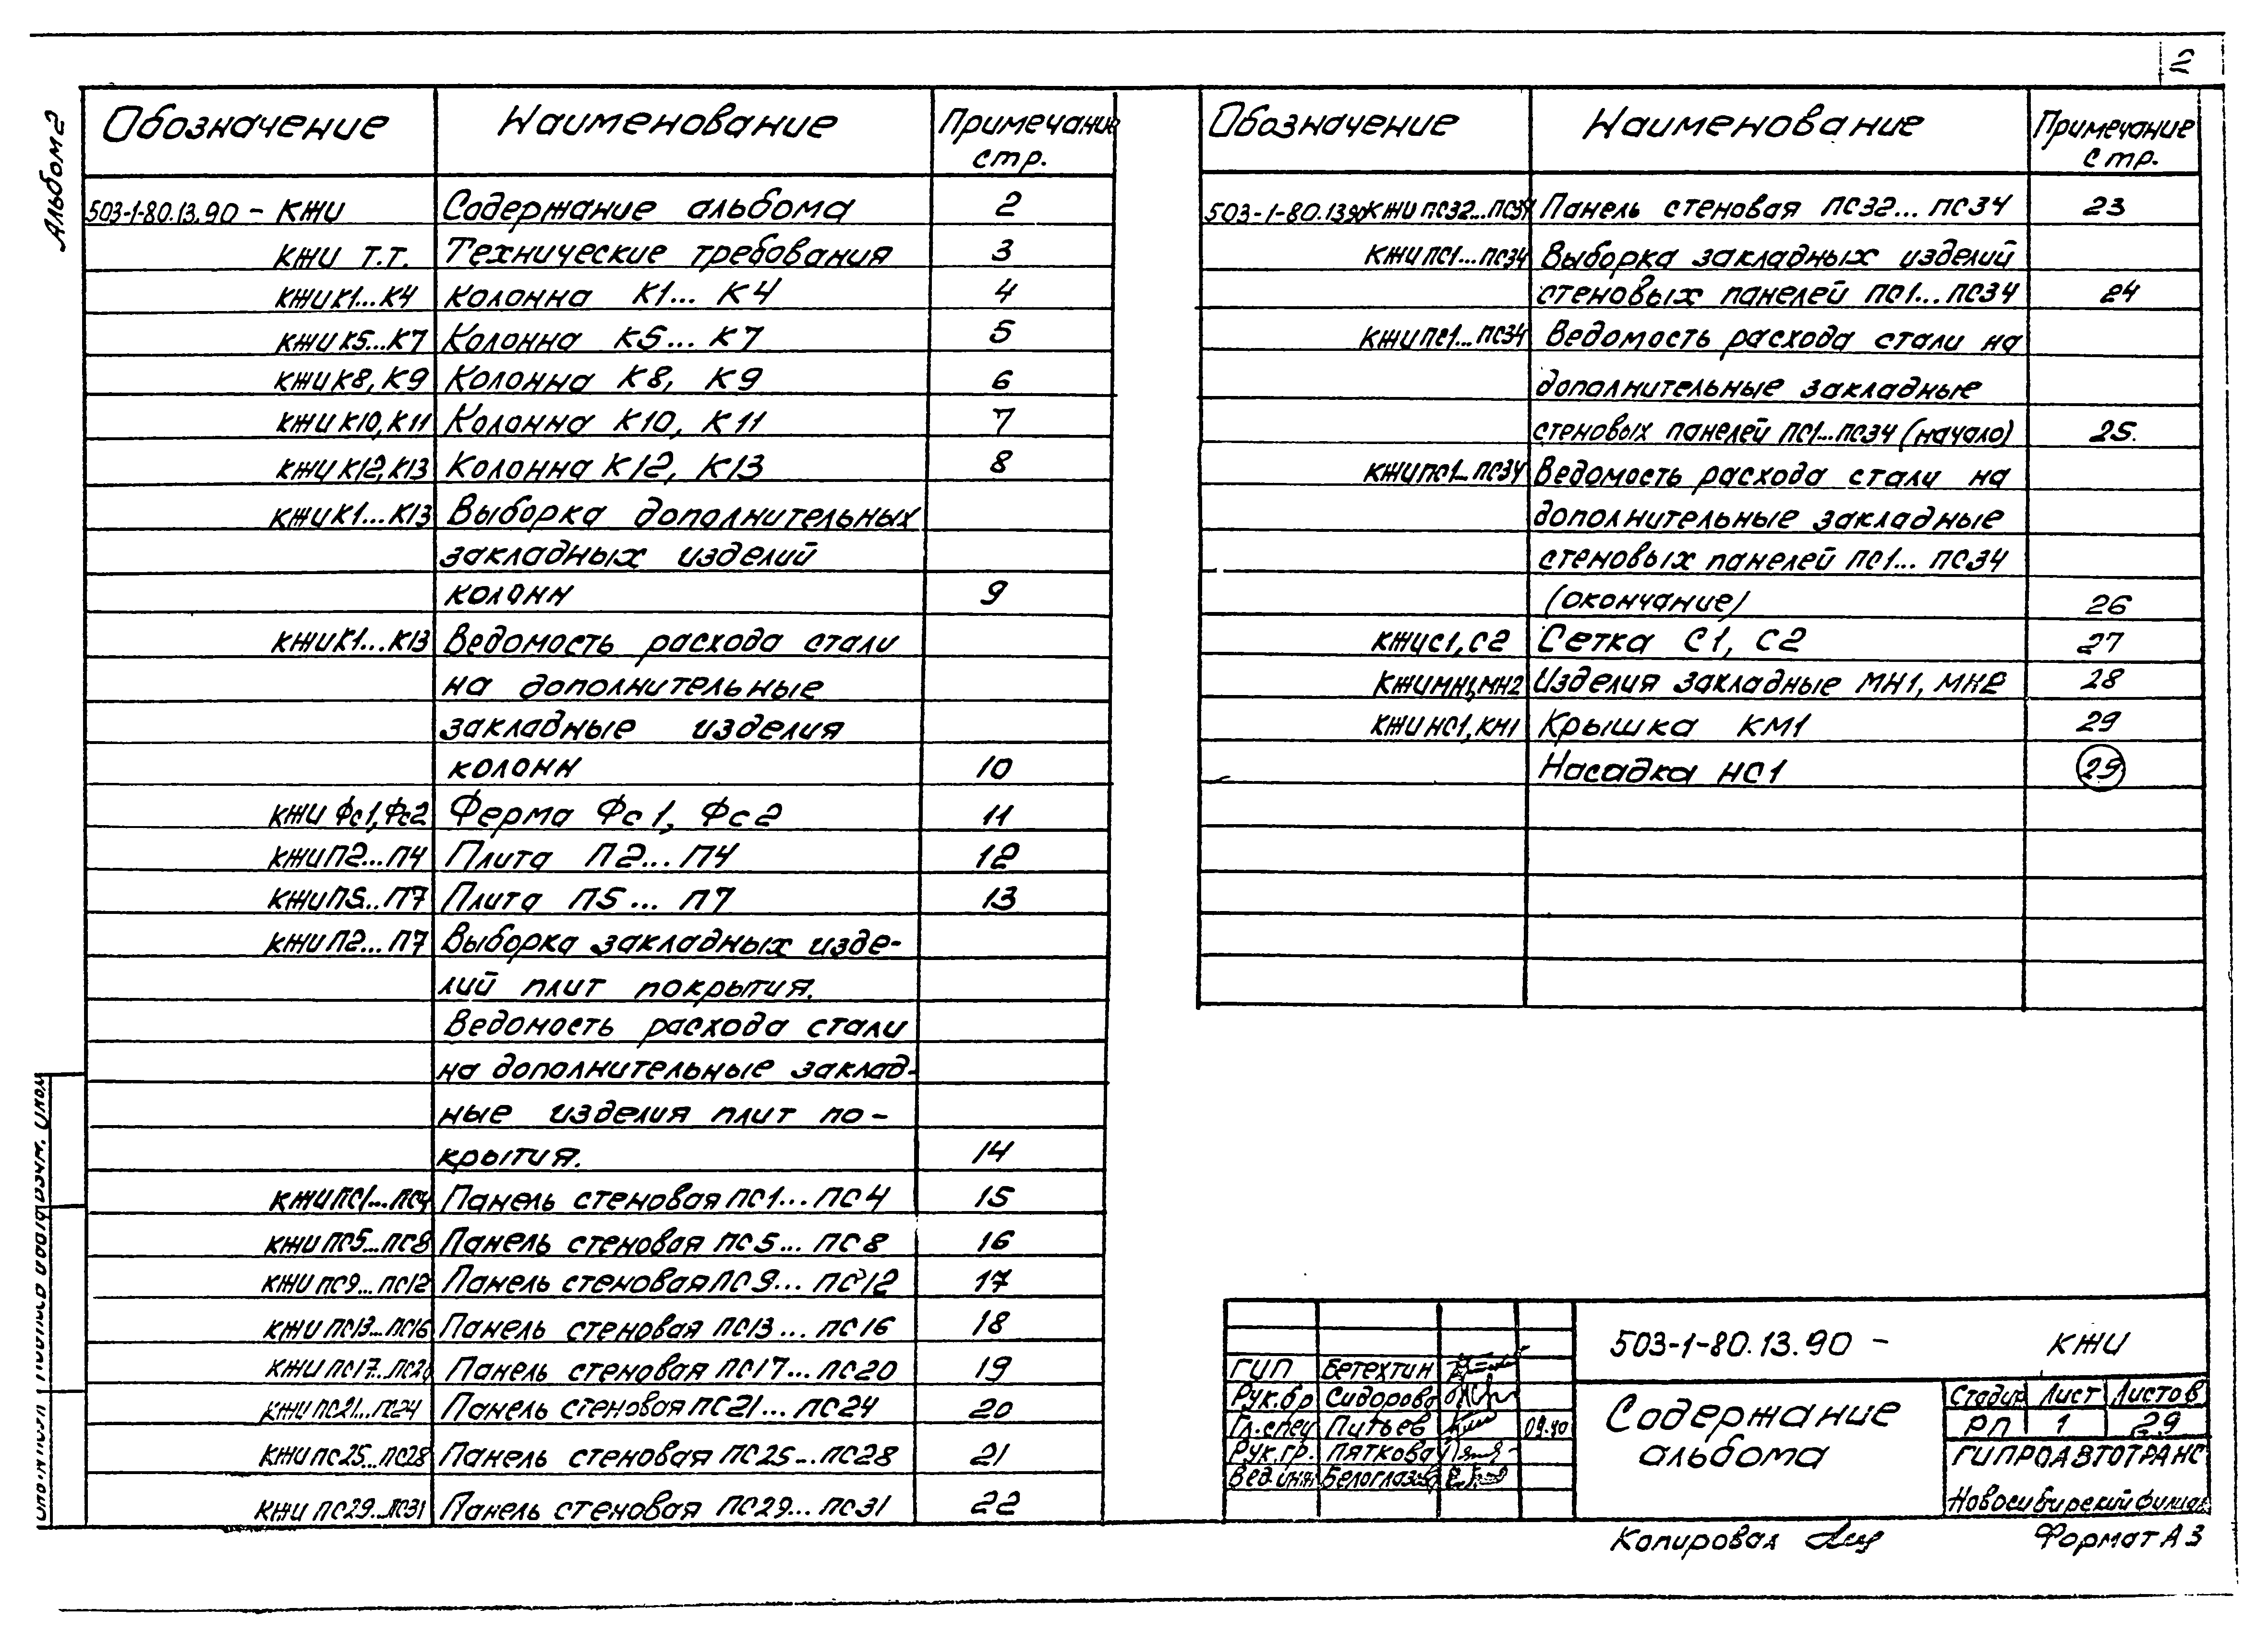 2
Альбом 2
Обозначение Наименование Примечание стр.
503-1-80.13.90 - КЖИ Содержание альбома 2
КЖИ Т.Т. Технические требования 3
КЖИ К1...К4 Колонна К1... К4 4
КЖИ К5...К7 Колонна К5... К7 5
КЖИ К8, К9 Колонна К8, К9 6
КЖИ К10, К11 Колонна К10, К11 7
КЖИ К12, К13 Колонна К12, К13 8
КЖИ К1...К13 Выборка дополнительных
закладных изделий
колонн 9
КЖИ К1...К13 Ведомость расхода стали
на дополнительные
закладные изделия
колонн 10
КЖИ Фс1, Фс2 Ферма Фс1, Фс2 11
КЖИ П2...П4 Плита П2...П4 12
КЖИ П5...П7 Плита П5... П7 13
КЖИ П2...П7 Выборка закладных изде-
лий плит покрытия.
Ведомость расхода стали
на дополнительные заклад-
ные изделия плит по-
крытия. 14
КЖИ ПС1...ПС4 Панель стеновая ПС1... ПС4 15
КЖИ ПС5...ПС8 Панель стеновая ПС5... ПС8 16
КЖИ ПС9...ПС12 Панель стеновая ПС9... ПС12 17
КЖИ ПС13...ПС16 Панель стеновая ПС13... ПС16 18
КЖИ ПС17...ПС20 Панель стеновая ПС17... ПС20 19
КЖИ ПС21...ПС24 Панель стеновая ПС21... ПС24 20
КЖИ ПС25...ПС28 Панель стеновая ПС25...ПС28 21
КЖИ ПС29...ПС31 Панель стеновая ПС29...ПС31 22
Обозначение Наименование Примечание стр.
503-1-80.13.90 КЖИ ПС32...ПС34 Панель стеновая ПС32... ПС34 23
КЖИ ПС1...ПС34 Выборка закладных изделий
стеновых панелей ПС1...ПС34 24
КЖИ ПС1...ПС34 Ведомость расхода стали на
дополнительные закладные
стеновых панелей ПС1...ПС34 (начало) 25.
КЖИ ПС1...ПС34 Ведомость расхода стали на
дополнительные закладные
стеновых панелей ПС1... ПС34
(окончание) 26
КЖИ С1, С2 Сетка С1, С2 27
КЖИ МН1, МН2 Изделия закладные МН1, МН2 28
КЖИ НС1, КМ1 Крышка КМ1 29
Насадка НС1 29
503-1-80.13.90 - КЖИ
ГИП Бетехтин
Рук.бр Сидорова
Гл.спец Питьев 09.90
Рук.гр. Пяткова
Вед.инж Белоглазов
Содержание
альбома
Стадия Лист Листов
РП 1 29
ГИПРОАВТОТРАНС
Новосибирский филиал
Копировал
Формат А3